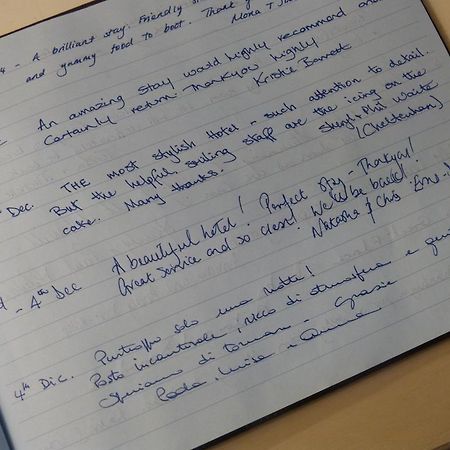 4 - A brilliant stay. Friendly
and yummy food to boot. Thank
Mona T
An amazing stay would highly recommend and
Certainly return. Thankyou highly
Kirstie Barrett
Dec. THE most stylish Hotel - such attention to detail.
But the helpful, smiling staff are the icing on the
cake. Many thanks. Sheryl & Phil Waite
(Cheltenham)
- 4th Dec A beautiful hotel! Perfect stay - Thankyou!
Great service and so clean! We'll be back!
Natasha & Chris
4th Dic. Purtroppo solo una notte!
Posto incantevole, ricco di atmosfera e
Speriamo di tornare - Grazie
Paola, Luisa e